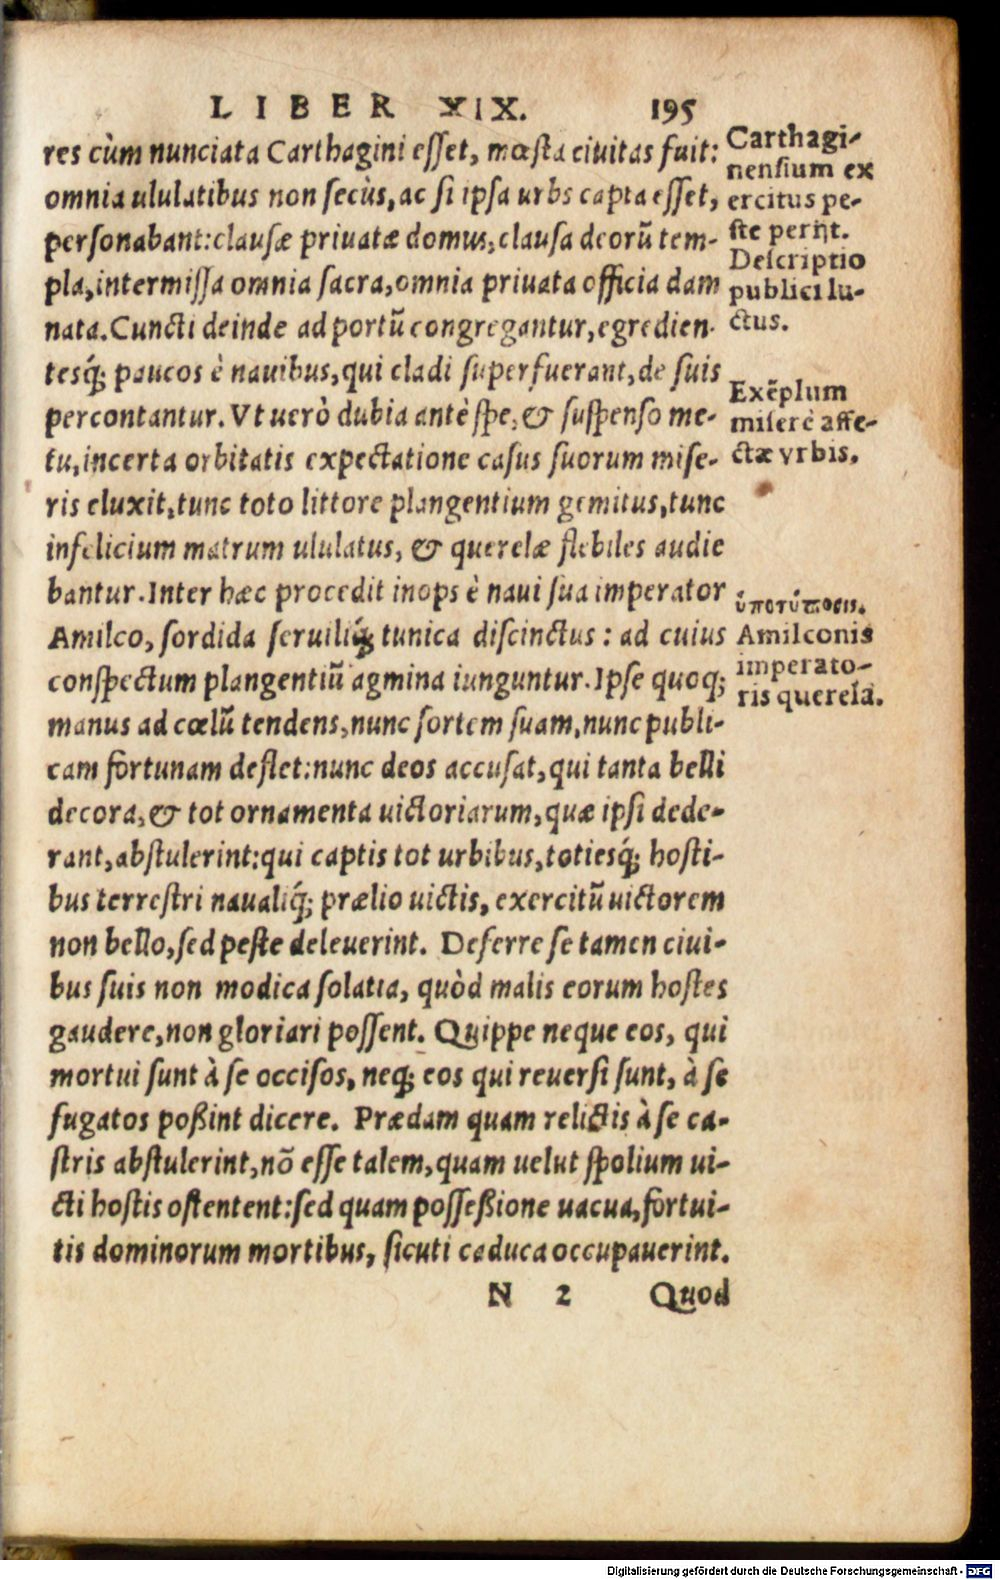 LIBER XIX. 195
res cùm nunciata Carthagini esset, mœsta ciuitas fuit:
omnia ululatibus non secùs, ac si ipsa urbs capta esset,
personabant: clausæ priuatæ domus, clausa deorū tem-
pla, intermissa omnia sacra, omnia priuata officia dam
nata. Cuncti deinde ad portū congregantur, egredien-
tesq́; paucos è nauibus, qui cladi superfuerant, de suis
percontantur. Vt uerò dubia antè spe, & suspenso me-
tu, incerta orbitatis expectatione casus suorum mise-
ris eluxit, tunc toto littore plangentium gemitus, tunc
infelicium matrum ululatus, & querelæ flebiles audie
bantur. Inter hæc procedit inops è naui sua imperator
Amilco, sordida seruiliq́; tunica discinctus: ad cuius
conspectum plangentiū agmina iunguntur. Ipse quoq;
manus ad cœlū tendens, nunc sortem suam, nunc publi-
cam fortunam deflet: nunc deos accusat, qui tanta belli
decora, & tot ornamenta uictoriarum, quæ ipsi dede-
rant, abstulerint: qui captis tot urbibus, totiesq́; hosti-
bus terrestri naualiq́; prælio uictis, exercitū uictorem
non bello, sed peste deleuerint. Deferre se tamen ciui-
bus suis non modica solatia, quòd malis eorum hostes
gaudere, non gloriari possent. Quippe neque eos, qui
mortui sunt à se occisos, neq; eos qui reuersi sunt, à se
fugatos poßint dicere. Prædam quam relictis à se ca-
stris abstulerint, nō esse talem, quam uelut spolium ui-
cti hostis ostentent: sed quam posseßione uacua, fortui-
tis dominorum mortibus, sicuti caduca occupauerint.
N 2 Quod
Carthagi-
nensium ex
ercitus pe-
ste perijt.
Descriptio
publici lu-
ctus.
Exēplum
miserè affe-
ctæ vrbis.
ὑποτύπωσις.
Amilconis
imperato-
ris querela.
Digitalisierung gefördert durch die Deutsche Forschungsgemeinschaft - DFG